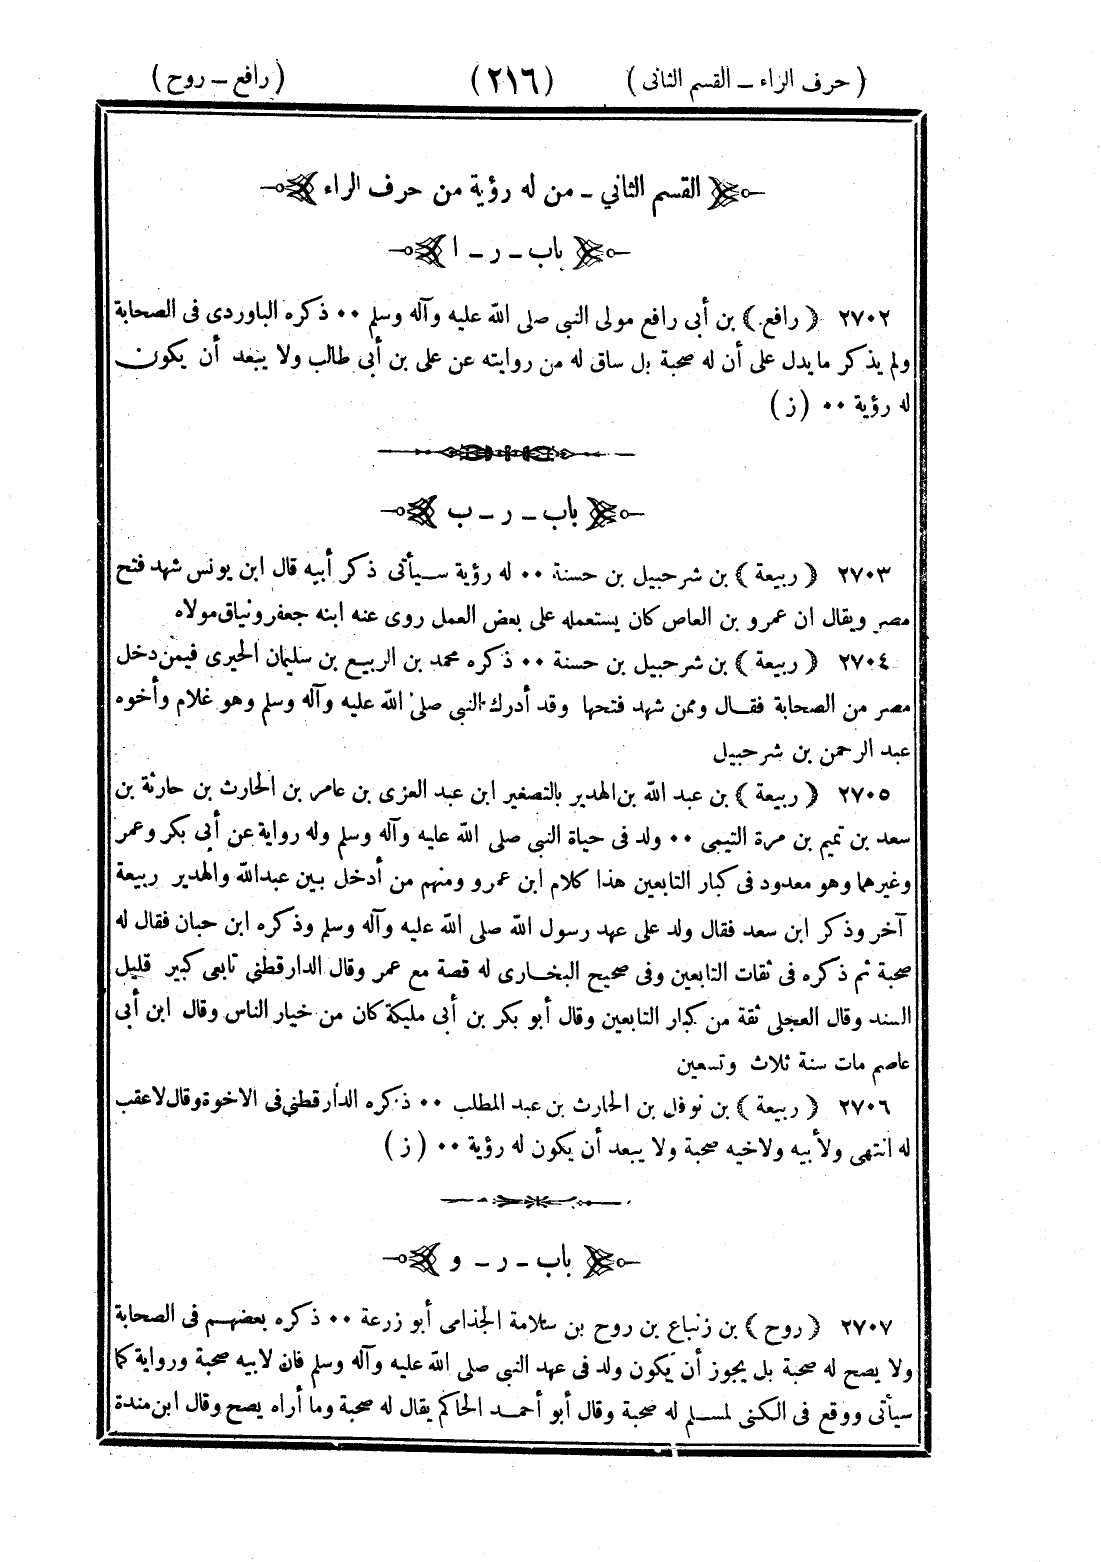 ( حرف الراء ــ القسم الثانى ) ( ٢١٦ ) ( رافع ــ روح )
القسم الثاني ــ من له رؤية من حرف الراء
باب ــ ر ــ ا
٢٧٠٢ ﴿ رافع ﴾ بن أبى رافع مولى النبى صلى الله عليه وآله وسلم ٠٠ ذكره الباوردى فى الصحابة
ولم يذكر مايدل على أن له صحبة بل ساق له من روايته عن على بن أبى طالب ولا يبعد أن يكون
له رؤية ٠٠ ( ز )
باب ــ ر ــ ب
٢٧٠٣ ﴿ ربيعة ﴾ بن شرحبيل بن حسنة ٠٠ له رؤية سيأتى ذكر أبيه قال ابن يونس شهد فتح
مصر ويقال ان عمرو بن العاص كان يستعمله على بعض العمل روى عنه ابنه جعفر ونياق مولاه
٢٧٠٤ ﴿ ربيعة ﴾ بن شرحبيل بن حسنة ٠٠ ذكره محمد بن الربيع بن سليمان الجيزى فيمن دخل
مصر من الصحابة فقال وممن شهد فتحها وقد أدرك النبى صلى الله عليه وآله وسلم وهو غلام وأخوه
عبد الرحمن بن شرحبيل
٢٧٠٥ ﴿ ربيعة ﴾ بن عبد الله بن الهدير بالتصغير ابن عبد العزى بن عامر بن الحارث بن حارثة بن
سعد بن تميم بن مرة التيمى ٠٠ ولد فى حياة النبى صلى الله عليه وآله وسلم وله رواية عن أبى بكر وعمر
وغيرهما وهو معدود فى كبار التابعين هذا كلام ابن عمرو ومنهم من أدخل بين عبدالله والهدير ربيعة
آخر وذكر ابن سعد فقال ولد على عهد رسول الله صلى الله عليه وآله وسلم وذكره ابن حبان فقال له
صحبة ثم ذكره فى ثقات التابعين وفى صحيح البخارى له قصة مع عمر وقال الدارقطني تابعى كبير قليل
السند وقال العجلى ثقة من كبار التابعين وقال أبو بكر بن أبى مليكة كان من خيار الناس وقال ابن أبى
عاصم مات سنة ثلاث وتسعين
٢٧٠٦ ﴿ ربيعة ﴾ بن نوفل بن الحارث بن عبد المطلب ٠٠ ذكره الدارقطنى فى الاخوة وقال لاعقب
له انتهى ولأبيه ولاخيه صحبة ولا يبعد أن يكون له رؤية ٠٠ ( ز )
باب ــ ر ــ و
٢٧٠٧ ﴿ روح ﴾ بن زنباع بن روح بن سلامة الجذامى أبو زرعة ٠٠ ذكره بعضهم فى الصحابة
ولا يصح له صحبة بل يجوز أن يكون ولد فى عهد النبى صلى الله عليه وآله وسلم فان لابيه صحبة ورواية كما
سيأتى ووقع فى الكنى لمسلم له صحبة وقال أبو أحمد الحاكم يقال له صحبة وما أراه يصح وقال ابن مندة